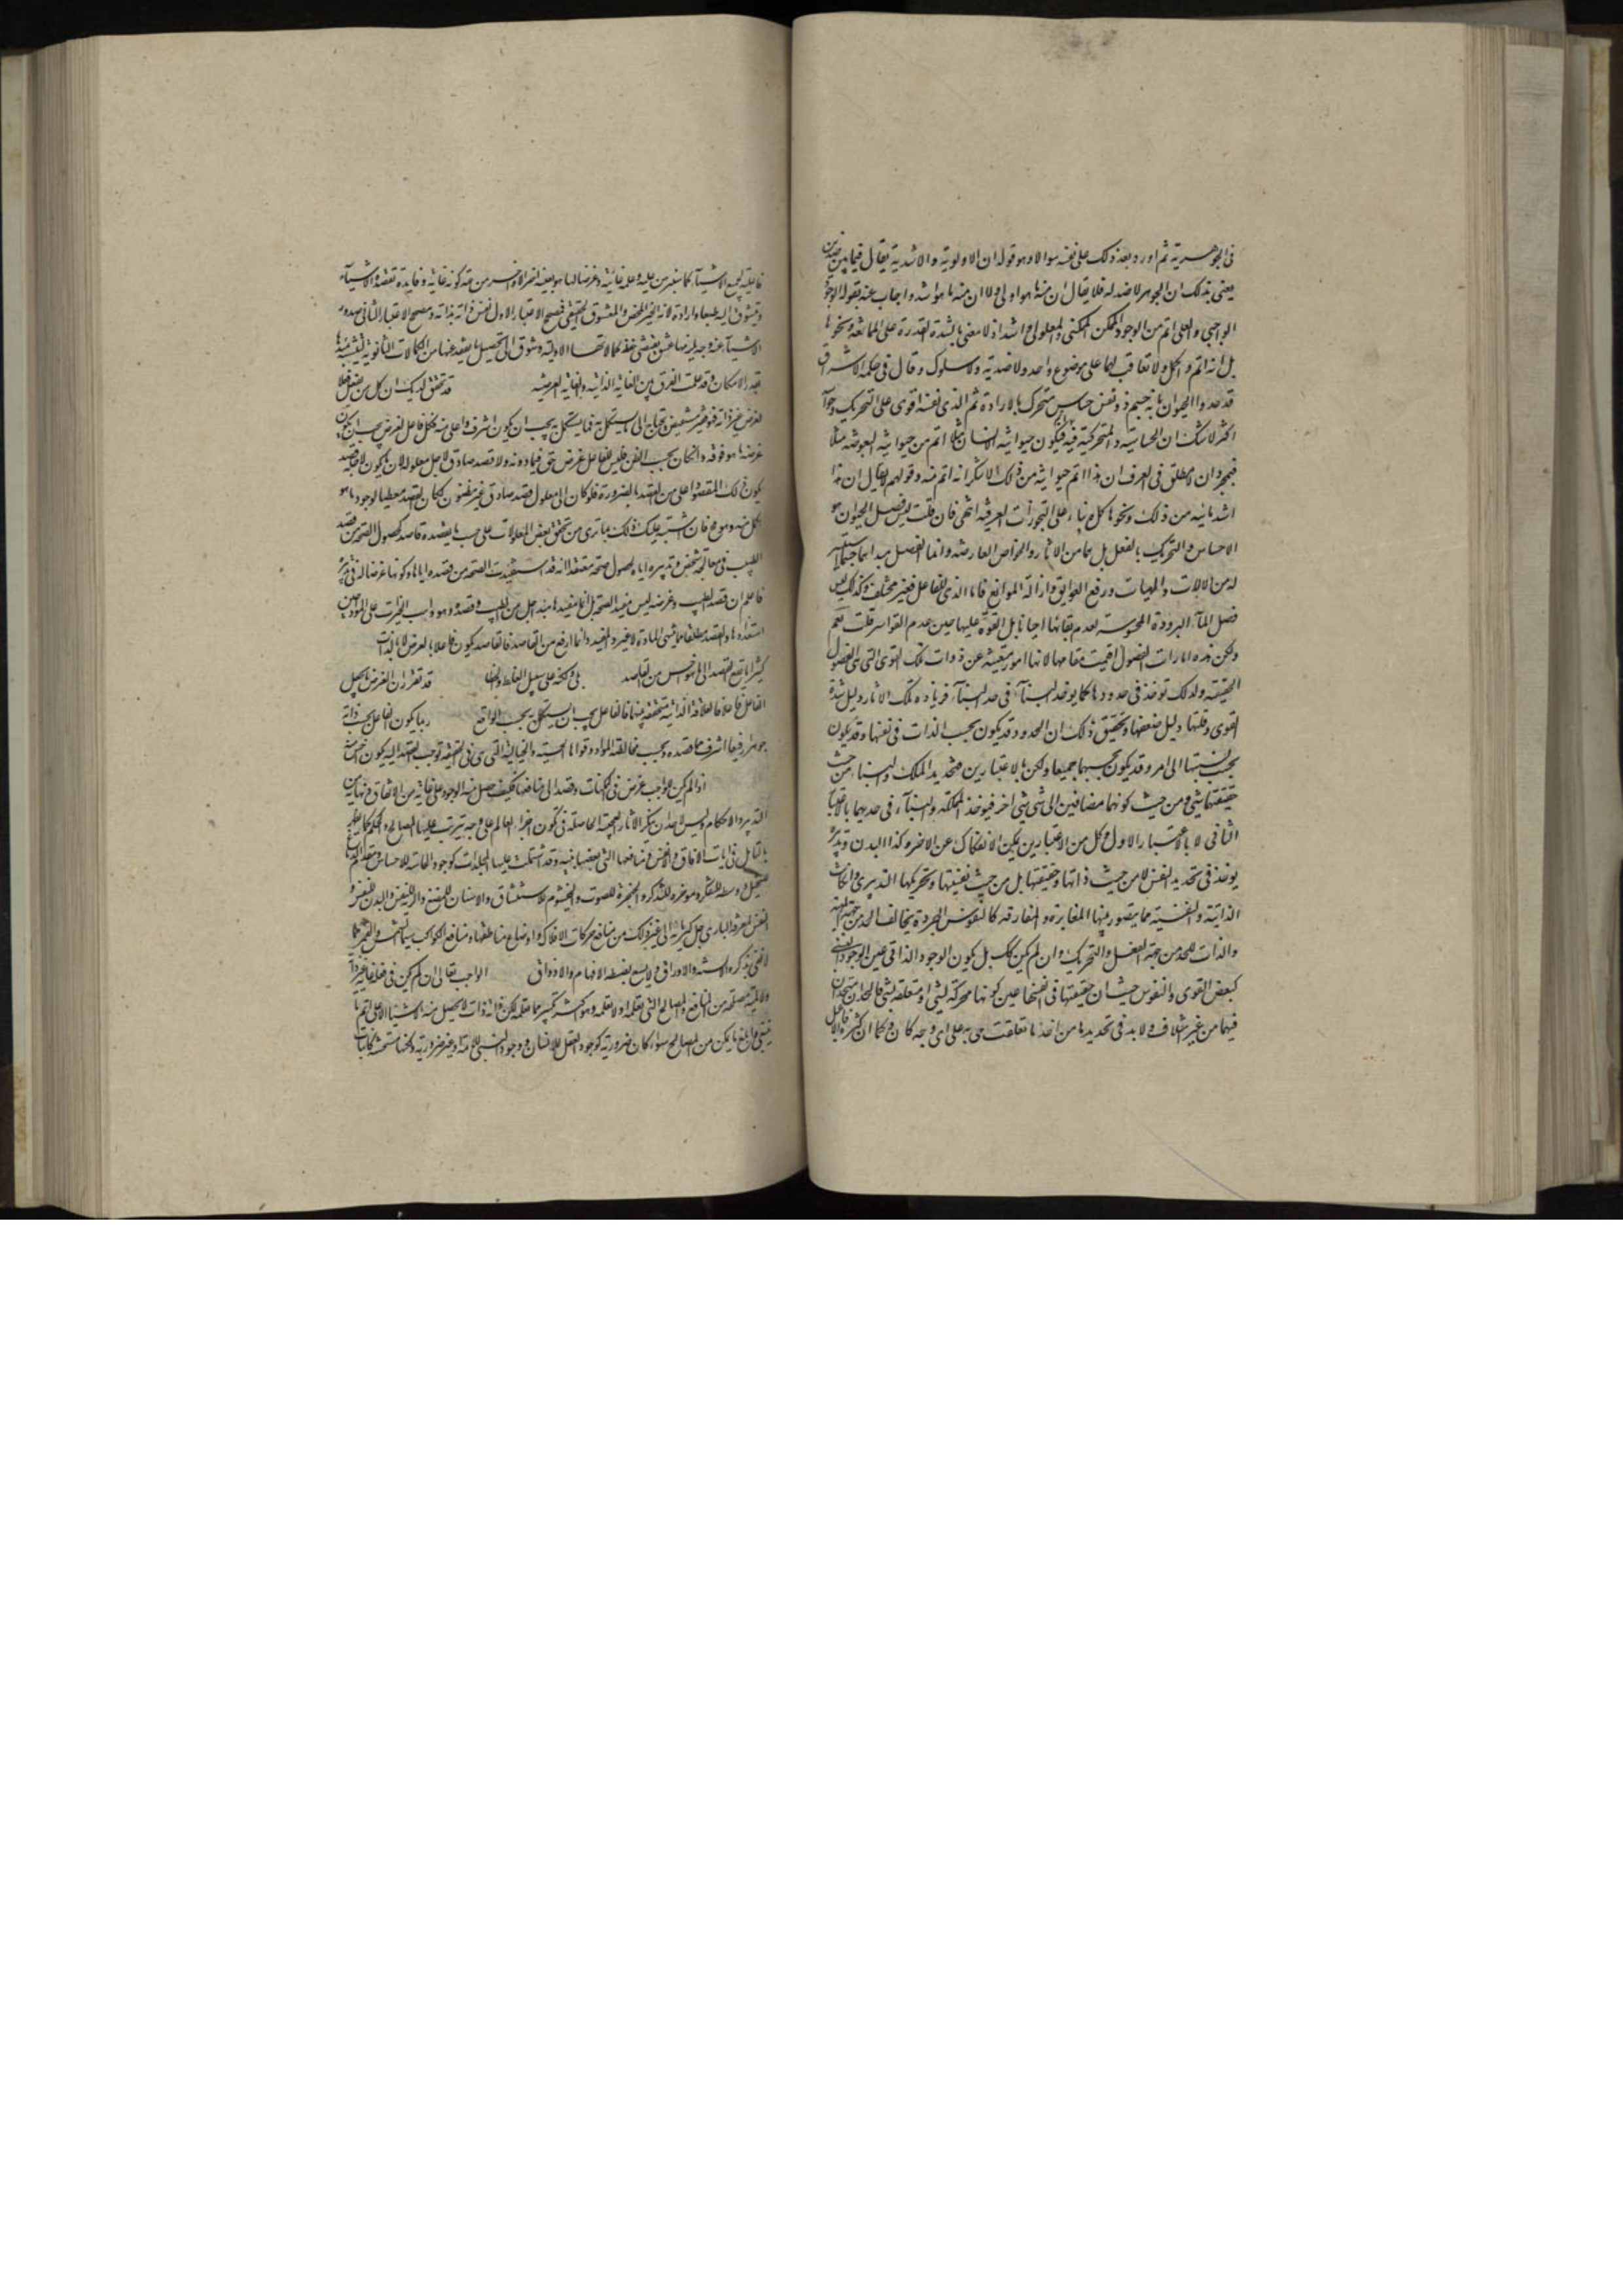 فى الجوهرية ثم اورد بعد ذلك على نفسه سوالا وهو قوله ان الاولوية والاشدية يقال فيما بين ضدين
يعنى بذلك ان الجوهر لا ضد له فلا يقال ان منه ما هو اولى ولا ان منه ما هو اشد واجاب عنه بقوله الوجود
الواجبى والعلى اتم من الوجود الممكن الممكنى والمعلولى واشد اذ لا معنى بالشدة القدرة على الممانعة ونحوها
بل انه اتم واكمل ولا تعاقب لهما على موضوع واحد ولا ضدية ولا سلوك وقال فى حكمة الاشراق
قد حدوا الحيوان بانه جسم ذو نفس حساس متحرك بالارادة ثم الذى نفسه اقوى على التحريك وحواسه
اكثر لا شك ان الحساسية والمتحركية فيه اتم فيكون حيوانية الانسان مثلا اتم من حيوانية البعوضة مثلا
فبمجرد ان لا يطلق فى العرف ان هذا اتم حيوانية من ذلك لا ينكر انه اتم منه وقولهم لا يقال ان هذا
اشد مائية من ذلك ونحوها كله بناء على التجوزات العرفية انتهى فان قلت ليس فصل الحيوان هو
الاحساس والتحريك بالفعل بل هما من الاثار والخواص العارضة وانما الفصل مبداهما
له من الالات والهيات ورفع العوايق وازالة الموانع فاما الذى للفاعل فغير مختلف وكذلك ليس
فصل الماء البرودة المحسوسة لعدم بقائها احيانا بل القوة عليها حين عدم القواسر قلت نعم
ولكن هذه امارات للفصول اقيمت مقامها لانها امور منبعثة عن ذوات تلك القوى التى هى الفصول
الحقيقية ولذلك توخذ فى حدودها كما يوخذ البناء فى حد البناء فزيادة تلك الاثار دليل شدة
القوى وقلتها دليل ضعفها وتحقيق ذلك ان الحدود قد يكون بحسب الذات فى نفسها وقد يكون
بحسب نسبتها الى امر وقد يكون بحسبهما جميعا ولكن بالاعتبارين فتحديد الملك والبناء من حيث
حقيقتهما شئ ومن حيث كونهما مضافين الى شئ شئ اخر فيوخذ المملكة والبناء فى حديهما بالاعتبار
الثانى لا بالاعتبار الاول وكل من الاعتبارين يمكن الانفكاك عن الاخر وكذا البدن وتدبيره
يوخذ فى تحديد النفس لا من حيث ذاتها وحقيقتها بل من حيث نفسيتها وتحريكها التدبيرى واذا كانت
الذاتية والنفسية مما يتصور بينها المغايرة والمفارقة كالنفوس المجردة يخالف الحد من جهة
والذات للحد من جهة الفعل والتحريك وان لم يكن كك بل يكون الوجود الذاتى عين الوجود النسبى
كبعض القوى والنفوس حيث ان حقيقتها فى انفسها عين كونها محركة لشئ او متعلقة بشئ فالحدان متحدان
فيهما من غير اختلاف ولا بد فى تحديدها من اخذ ما تعلقت هى به على اى وجه كان وكما ان
قابلية لجميع الاشياء كما سنبرهن عليه وعلة غائية وغرضا لها هو بعينه
ويتشوق اليه طبعا وارادة لانه الخير المحض والمعشوق الحقيقى فمصحح الاعتبار الاول نفس ذاته بذاته ومصحح الاعتبار الثانى صدور
الاشياء عنه على وجه يلزمها عشق يقتضى حفظ كمالاتها الاولية وشوق الى تحصيل ما يفقد عنها من الكمالات الثانوية ليتشبه بمبدئها
بقدر الامكان وقد علمت الفرق بين الغاية الذاتية والغاية العرضية قد تحقق لديك ان كل من يفعل فعلا
لغرض غير ذاته فهو فقير مستعيض يحتاج الى ما يستكمل به فما يستكمل به يجب ان يكون اشرف واعلى منه فكل فاعل لغرض يجب ان يكون
غرضه ما هو فوقه وان كان بحسب الظن فليس للفاعل غرض حق فيما دونه ولا قصد صادق لاجل معلوله لان ما يكون لاجله قصد
يكون ذلك المقصود اعلى من القصد بالضرورة فلو كان الى معلول قصد صادق غير مظنون لكان القصد معطيا لوجود ما هو
اكمل منه وهو مح فان اشتبه عليك ذلك بما ترى من تحقق بعض المعلولات على حسب ما يقصده قاصد كحصول الصحة من قصد
الطبيب فى معالجة شخص وتدبيره اياه لحصول صحته معتقدا انه قد استفيدت الصحة من قصده اياها وكونها غرضا له فى تدبيره
فاعلم ان قصد الطبيب وغرضه ليس مفيد الصحة بل انما يفيدها مبدء اجل من الطبيب وقصده وهو واهب الخيرات على المواد حين
استعدادها والقصد مطلقا مما يهيئ المادة لا غير والمفيد دائما ارفع من القاصد فالقاصد يكون فاعلا بالعرض لا بالذات
كثيرا ما يقع القصد الى ما هو اخس من القاصد بلى ولكنه على سبيل الغلط والخطا قد تقرر ان الغرض ما يجعل
الفاعل فاعلا فالعلاقة الذاتية متحققة بينهما فالفاعل يجب ان يستكمل به بحسب الواقع ربما يكون الفاعل بحسب ذاته
جوهرا رفيعا اشرف مما قصده وبحسب مخالطة المواد وقواها الحسية والخيالية التى هى فى الحقيقة توجب القصد اليه يكون اخس منه
اذا لم يكن للواجب غرض فى الكائنات وقصد الى منافعها فكيف حصل منه الوجود على غاية من الاتقان ونهاية من
التدبير والاحكام وليس لاحد ان ينكر الاثار العجيبة الحاصلة فى تكون اجزاء العالم على وجه يترتب عليها المصالح والحكم كما يظهر
بالتامل فى ايات الافاق والانفس ومنافعها التى بعضها بينة وقد اشتملت عليها المجلدات كوجود الحاسة للاحساس ومقدم الدماغ
للتخيل ووسطه للتفكر وموخره للتذكر والحنجرة للصوت والخيشوم لاستنشاق والاسنان للمضغ والرية للتنفس والبدن للنفس و
النفس لمعرفة البارى جل كبريائه الى غير ذلك من منافع حركات الافلاك واوضاع مناطقها ومنافع الكواكب سيما الشمس والقمر مما
لا تفى بذكره الالسنة والاوراق ولا يسع بضبطه الافهام والاذواق الواجب تعالى وان لم يكن فى فعله غاية غير ذاته
ولا لمية مصلحة من المنافع والمصالح التى نعلمها او لا نعلمها وهو اكثر بكثير مما نعلمه لكن ذاته ذات لا يحصل منه الاشياء الا على اتم ما
ينبغى وابلغ ما يمكن من المصالح سواء كان ضرورية كوجود العقل للانسان ووجود النبى للامة او غير ضرورية ولكنها مستحسنة كانبات